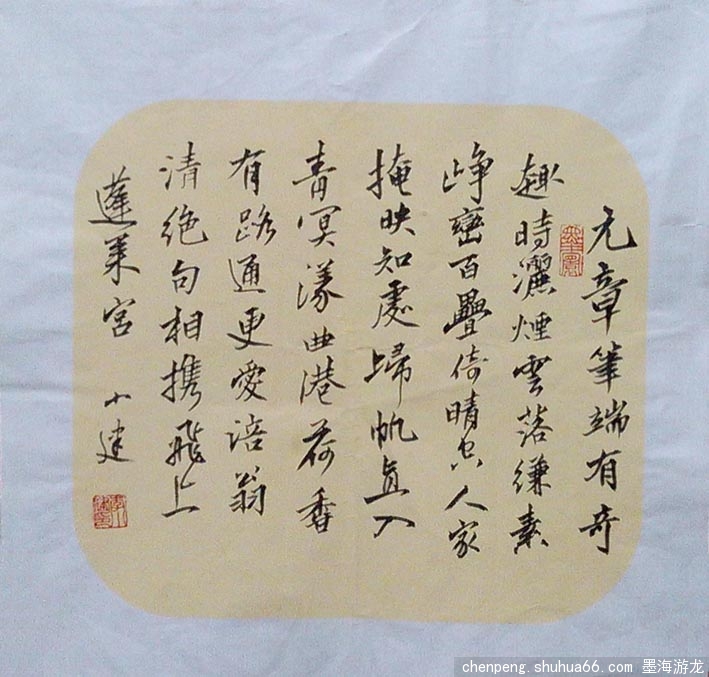 元章筆端有奇
趣時灑煙雲落縑素
崢巒百疊倚晴空人家
掩映知處歸帆直入
青冥漾曲港荷香
有路通更愛涪翁
清絶句相携飛上
蓬莱宮 小建
chenpeng.shuhua66.com 墨海游龙